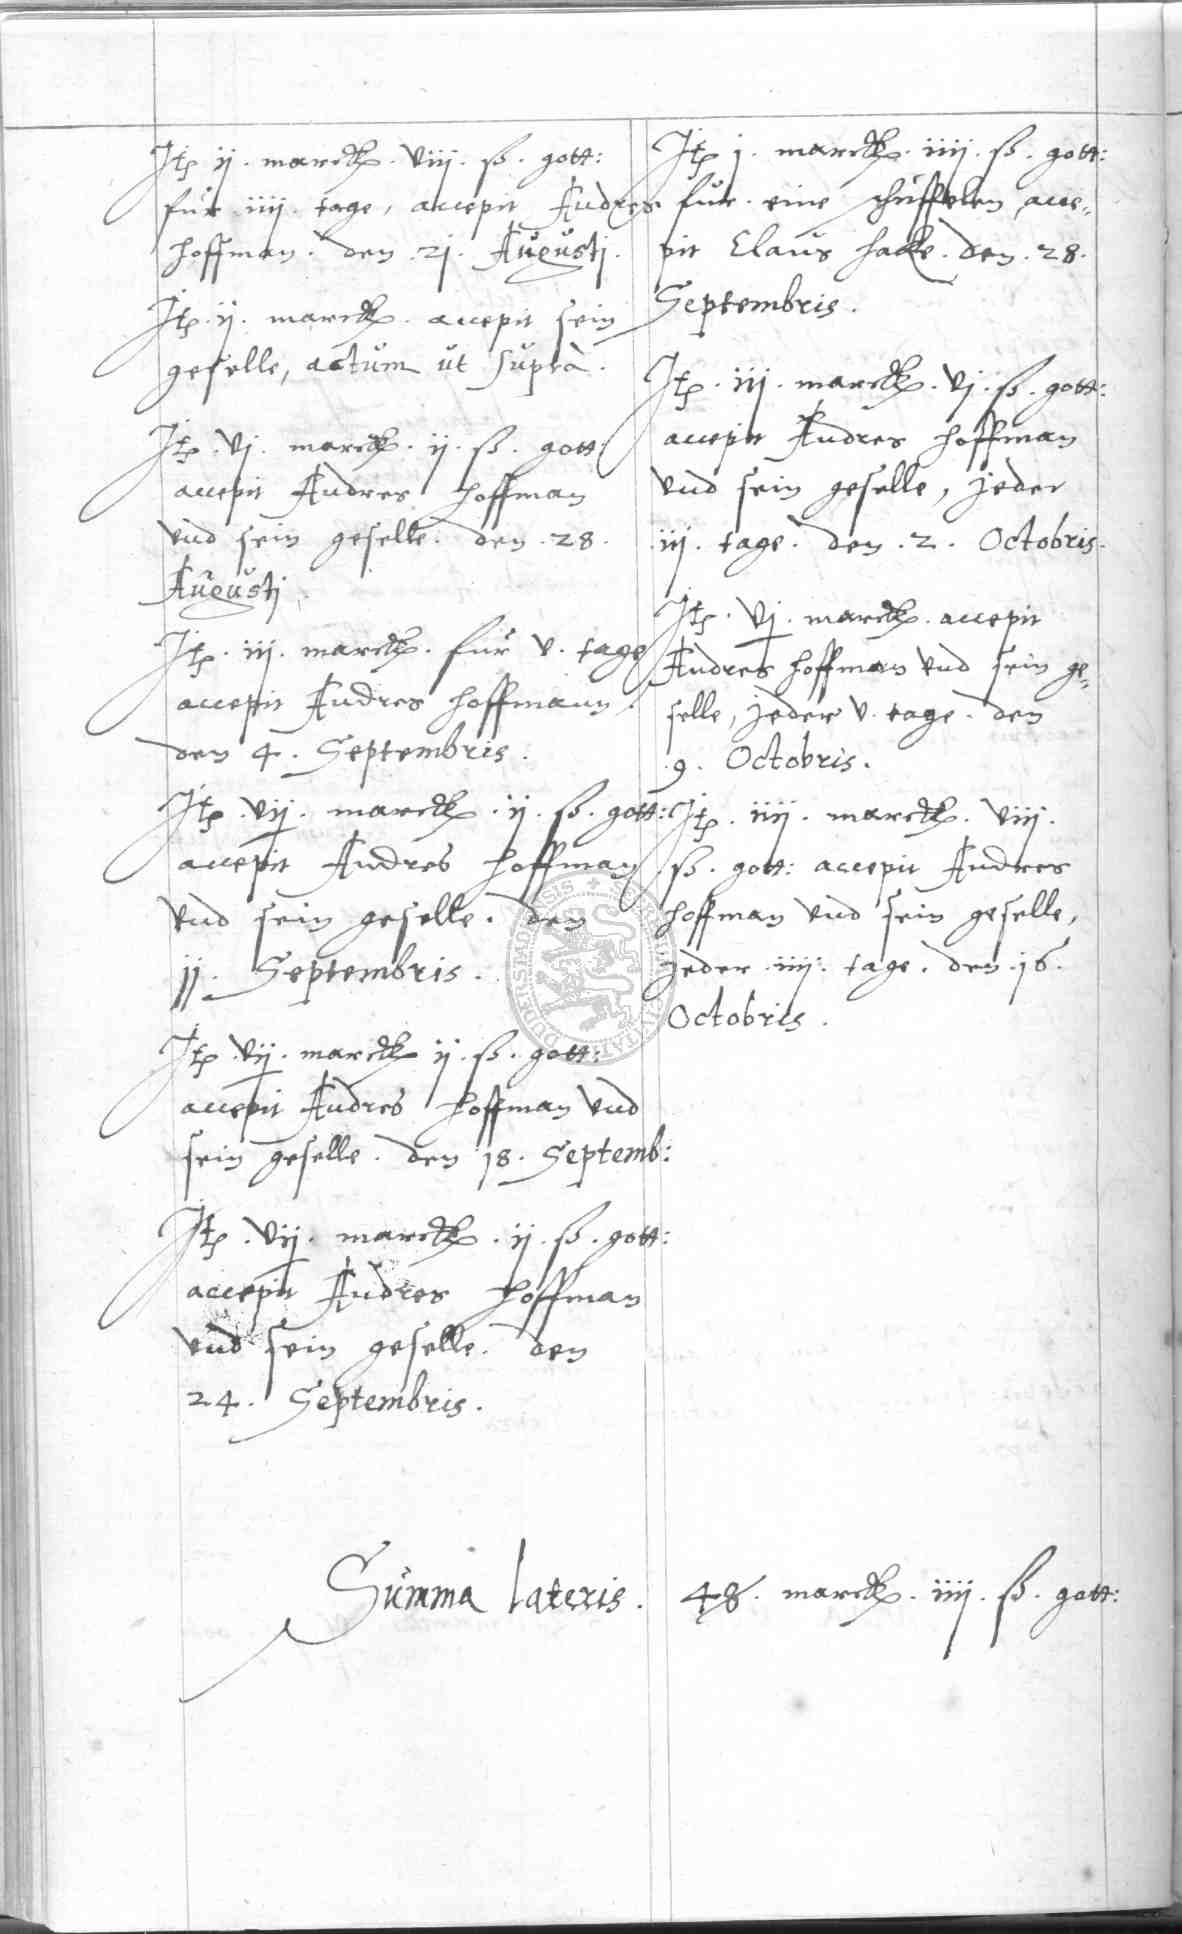 Itp ij. marck. viij. ß. gott:
für iiij. tage, accepit Andres
hoffman. den 2j. Augustj.
Itp. ij. marck. accepit sein
geselle, actum ut supra.
Itp. vj. marck. ij. ß. gott:
accepit Andres hoffman
vnd sein geselle. den. 28.
Augustj.
Itp. iij. marck. für v. tage
accepit Andres hoffmann.
den 4. Septembris.
Itp. vij. marck. ij. ß. gott:
accepit Andres hoffman
vnd sein geselle. den
jj. Septembris.
Itp. vij. marck ij. ß. gott:
accepit Andres hoffman vnd
sein geselle. den j8. Septemb:
Itp. vij. marck. ij. ß. gott:
accepit Andres hoffman
vnd sein geselle. den
24. Septembris.
Itp j. marck. iiij. ß. gott:
für eine schüffelen acce„
pit Claus hacke. den. 28.
Septembris.
Itp. iij. marck. vj. ß. gott:
accepit Andres hoffman
vnd sein geselle, jeder
iij. tage. den. 2. Octobris.
Itp. vj. marck. accepit
Andres hoffman vnd sein ge„
selle, jeder v. tage. den
.9. Octobris.
Itp. iiij. marck. viij.
ß. gott: accepit Andres
hoffman vnd sein geselle,
jeder iiij. tage. den. j6.
Octobris.
Summa lateris. 48. marck. iiij. ß. gott: